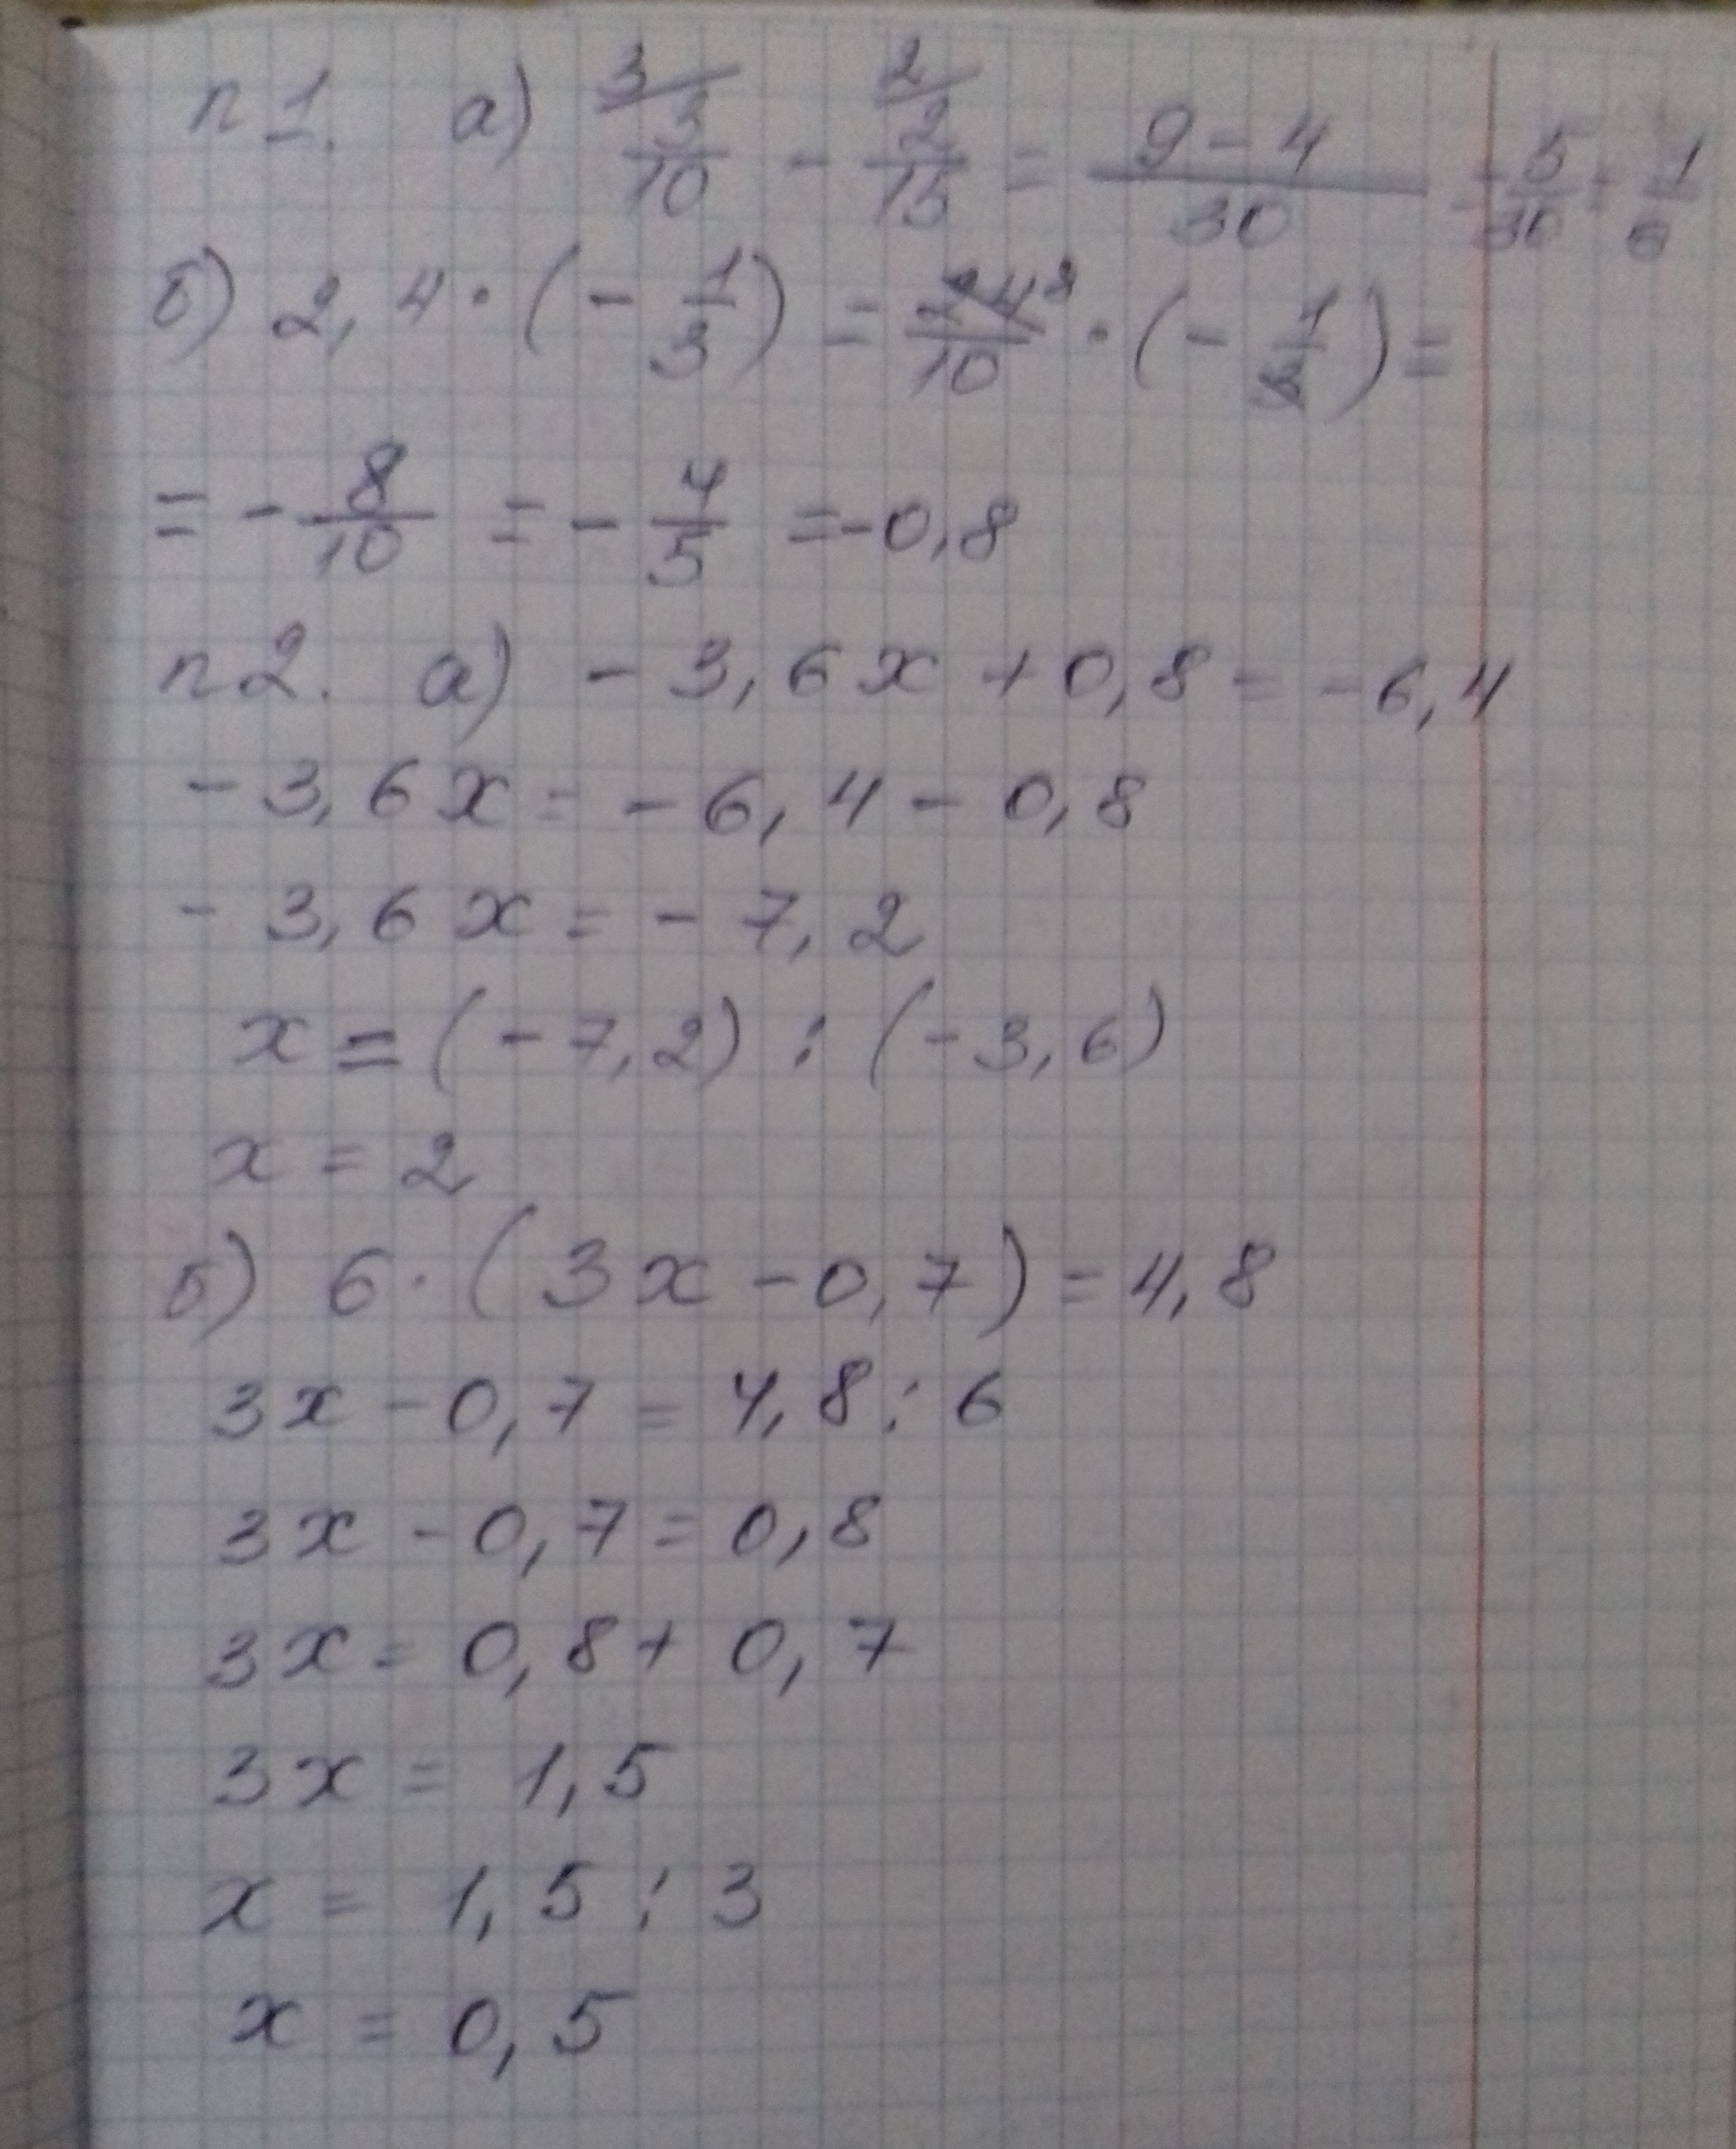 п 1. а) ³/ 3/10 - ²/ 2/15 = (9-4)/30 = 5/30 = 1/6
б) 2,4 · (- 1/3) = 24⁸/10 · (- 1/3) =
= - 8/10 = - 4/5 = -0,8
п 2. а) - 3,6 x + 0,8 = - 6,4
- 3,6 x = - 6,4 - 0,8
- 3,6 x = - 7,2
x = (- 7,2) : (- 3,6)
x = 2
б) 6 · (3x - 0,7) = 4,8
3x - 0,7 = 4,8 : 6
3x - 0,7 = 0,8
3x = 0,8 + 0,7
3x = 1,5
x = 1,5 : 3
x = 0,5